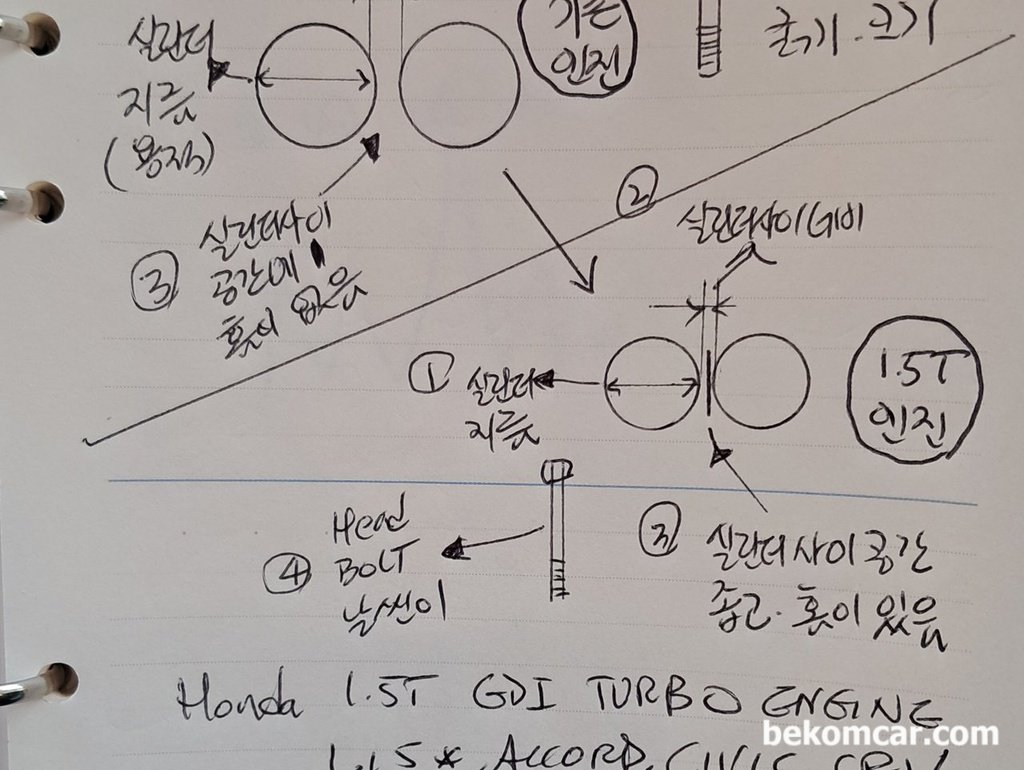 실린더
지름
(용적)
기존
엔진
굵기·크기
③
실린더사이
공간에
홈이 없음
②
실린더사이 너비
①
실린더
지름
1.5T
엔진
④
Head
BOLT
날씬이
③
실린더 사이 공간
좁고. 홈이 있음
Honda 1.5T GDI TURBO ENGINE
ACCORD, CIVIC CRV
bekomcar.com